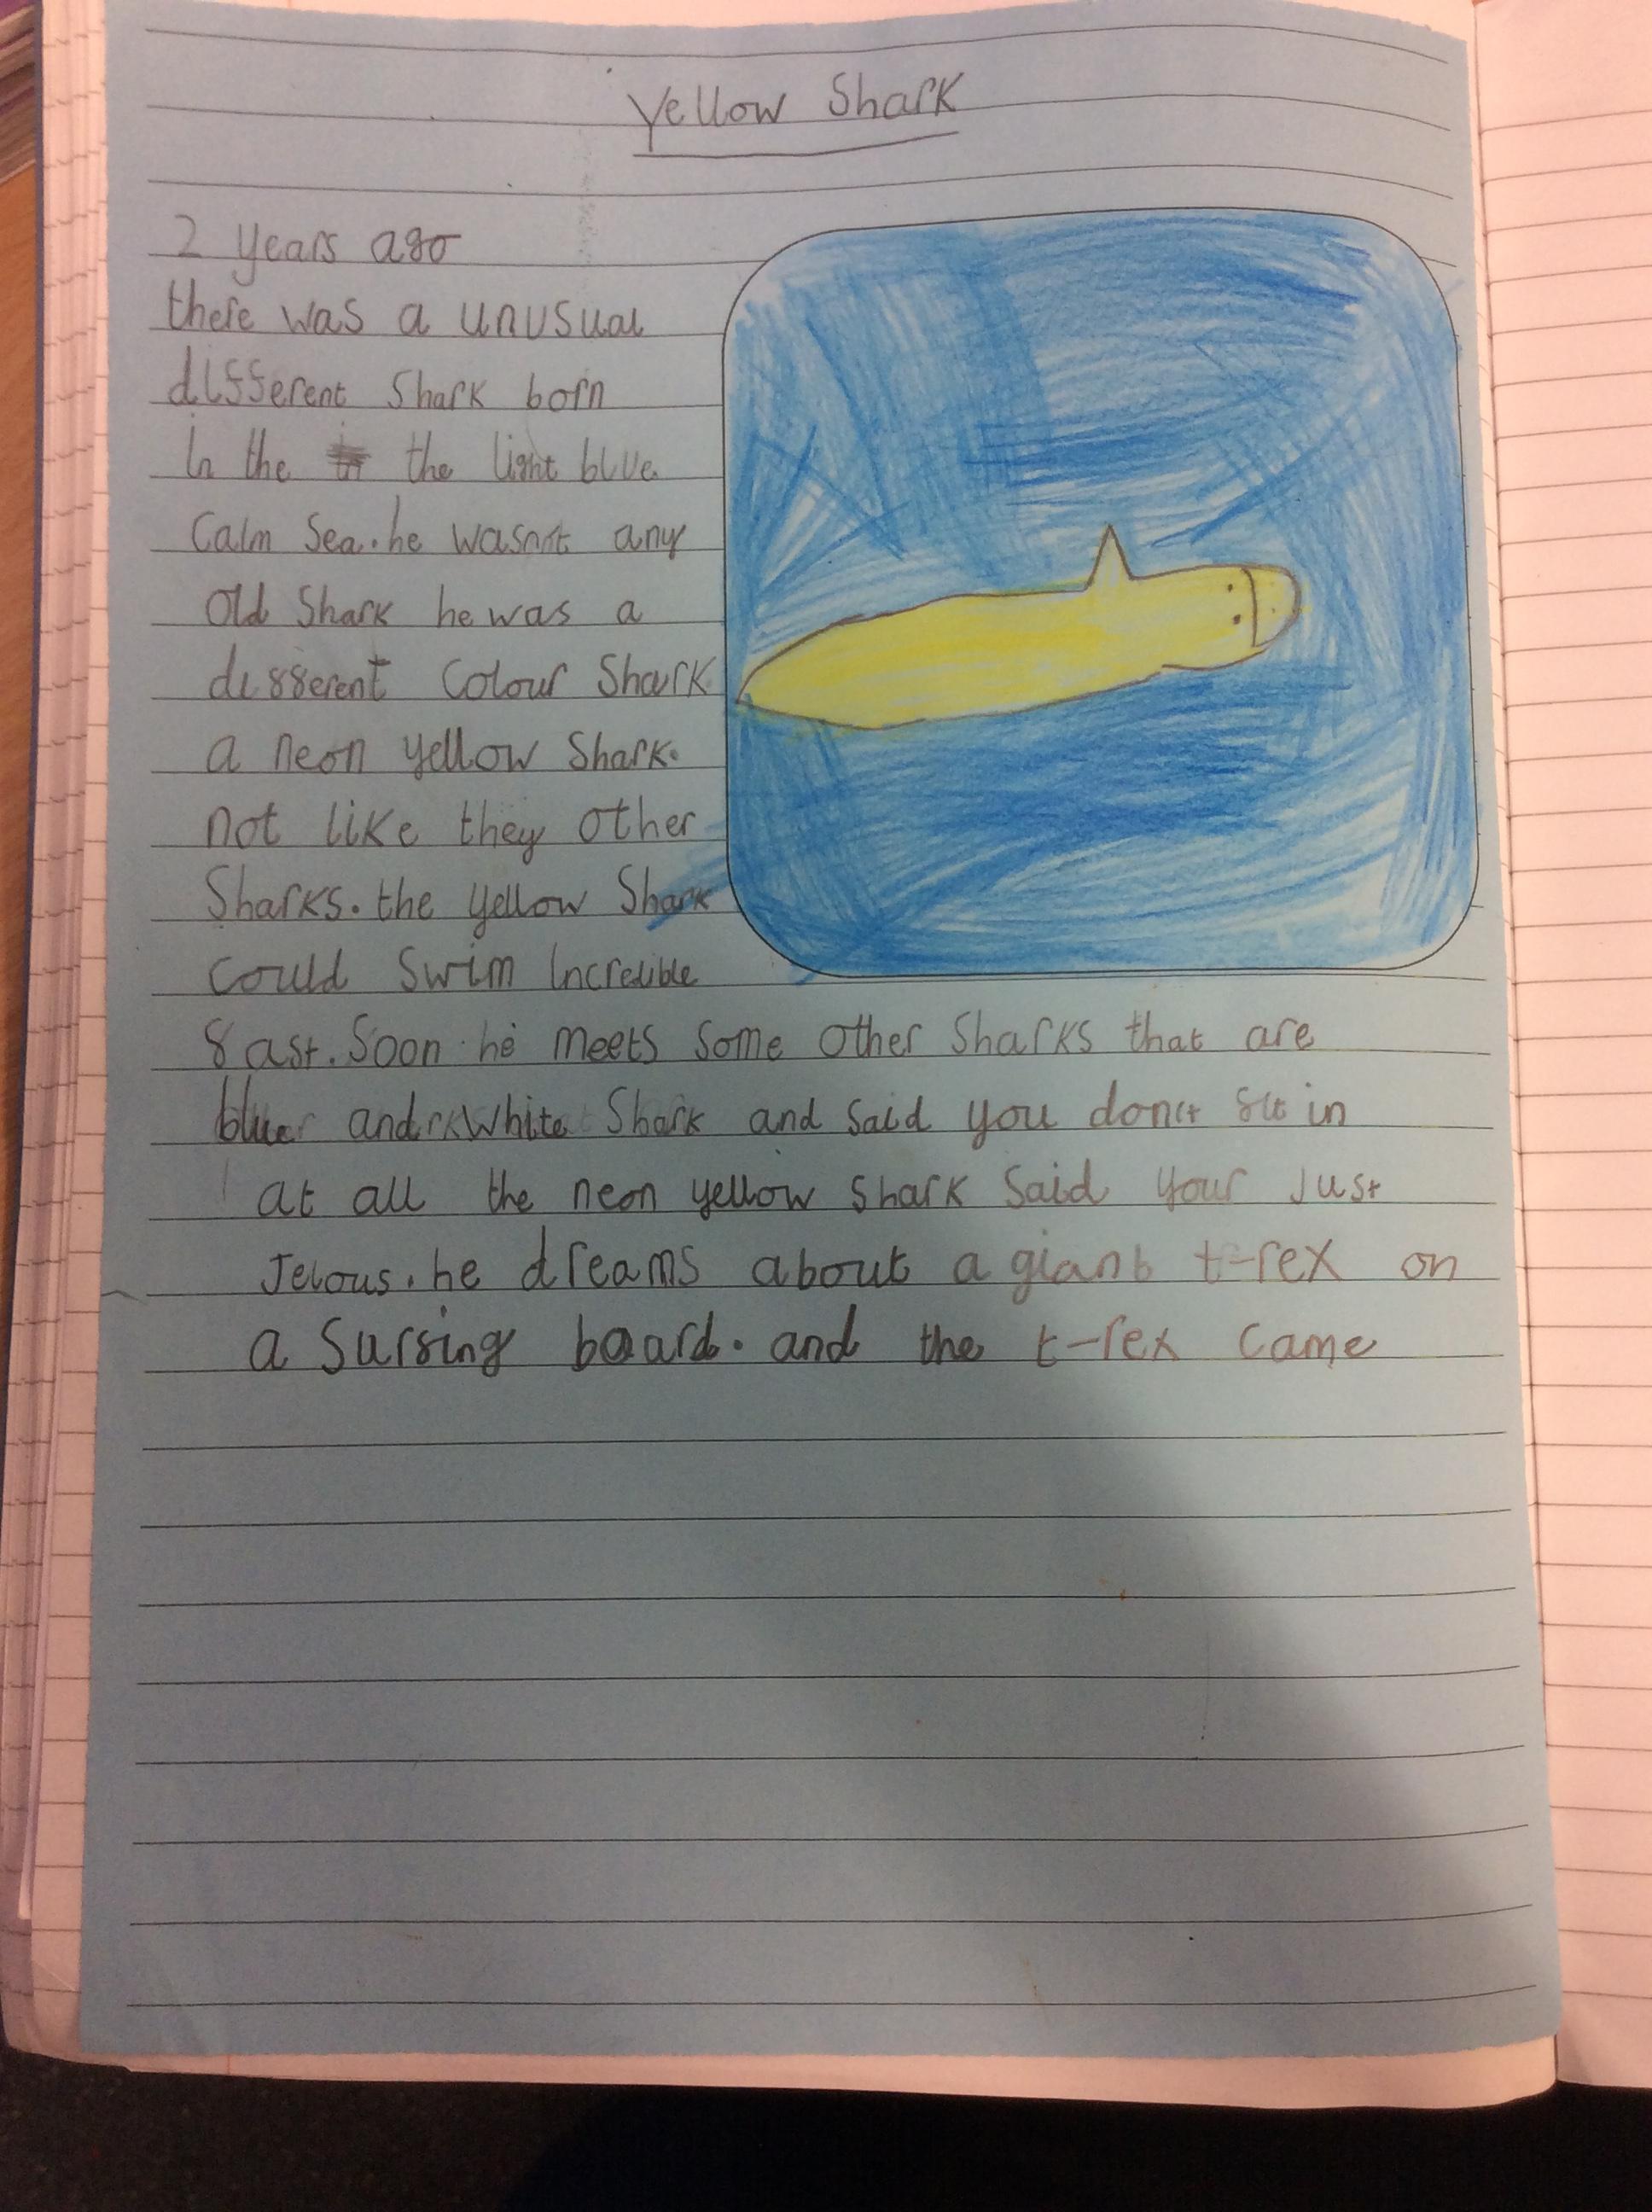 Yellow Shark
2 years ago
there was a unusual
different Shark born
in the the light blue
Calm Sea. he wasnot any
old Shark he was a
defferent Colour Shark
a neon yellow Shark.
not like they other
Sharks. the yellow Shark
could Swim incredible
fast. Soon he meets Some other Sharks that are
blue and White Shark and Said you don't fit in
at all the neon yellow Shark Said your Just
Jelous. he dreams about a giant t-rex on
a Surfing board. and the t-rex came